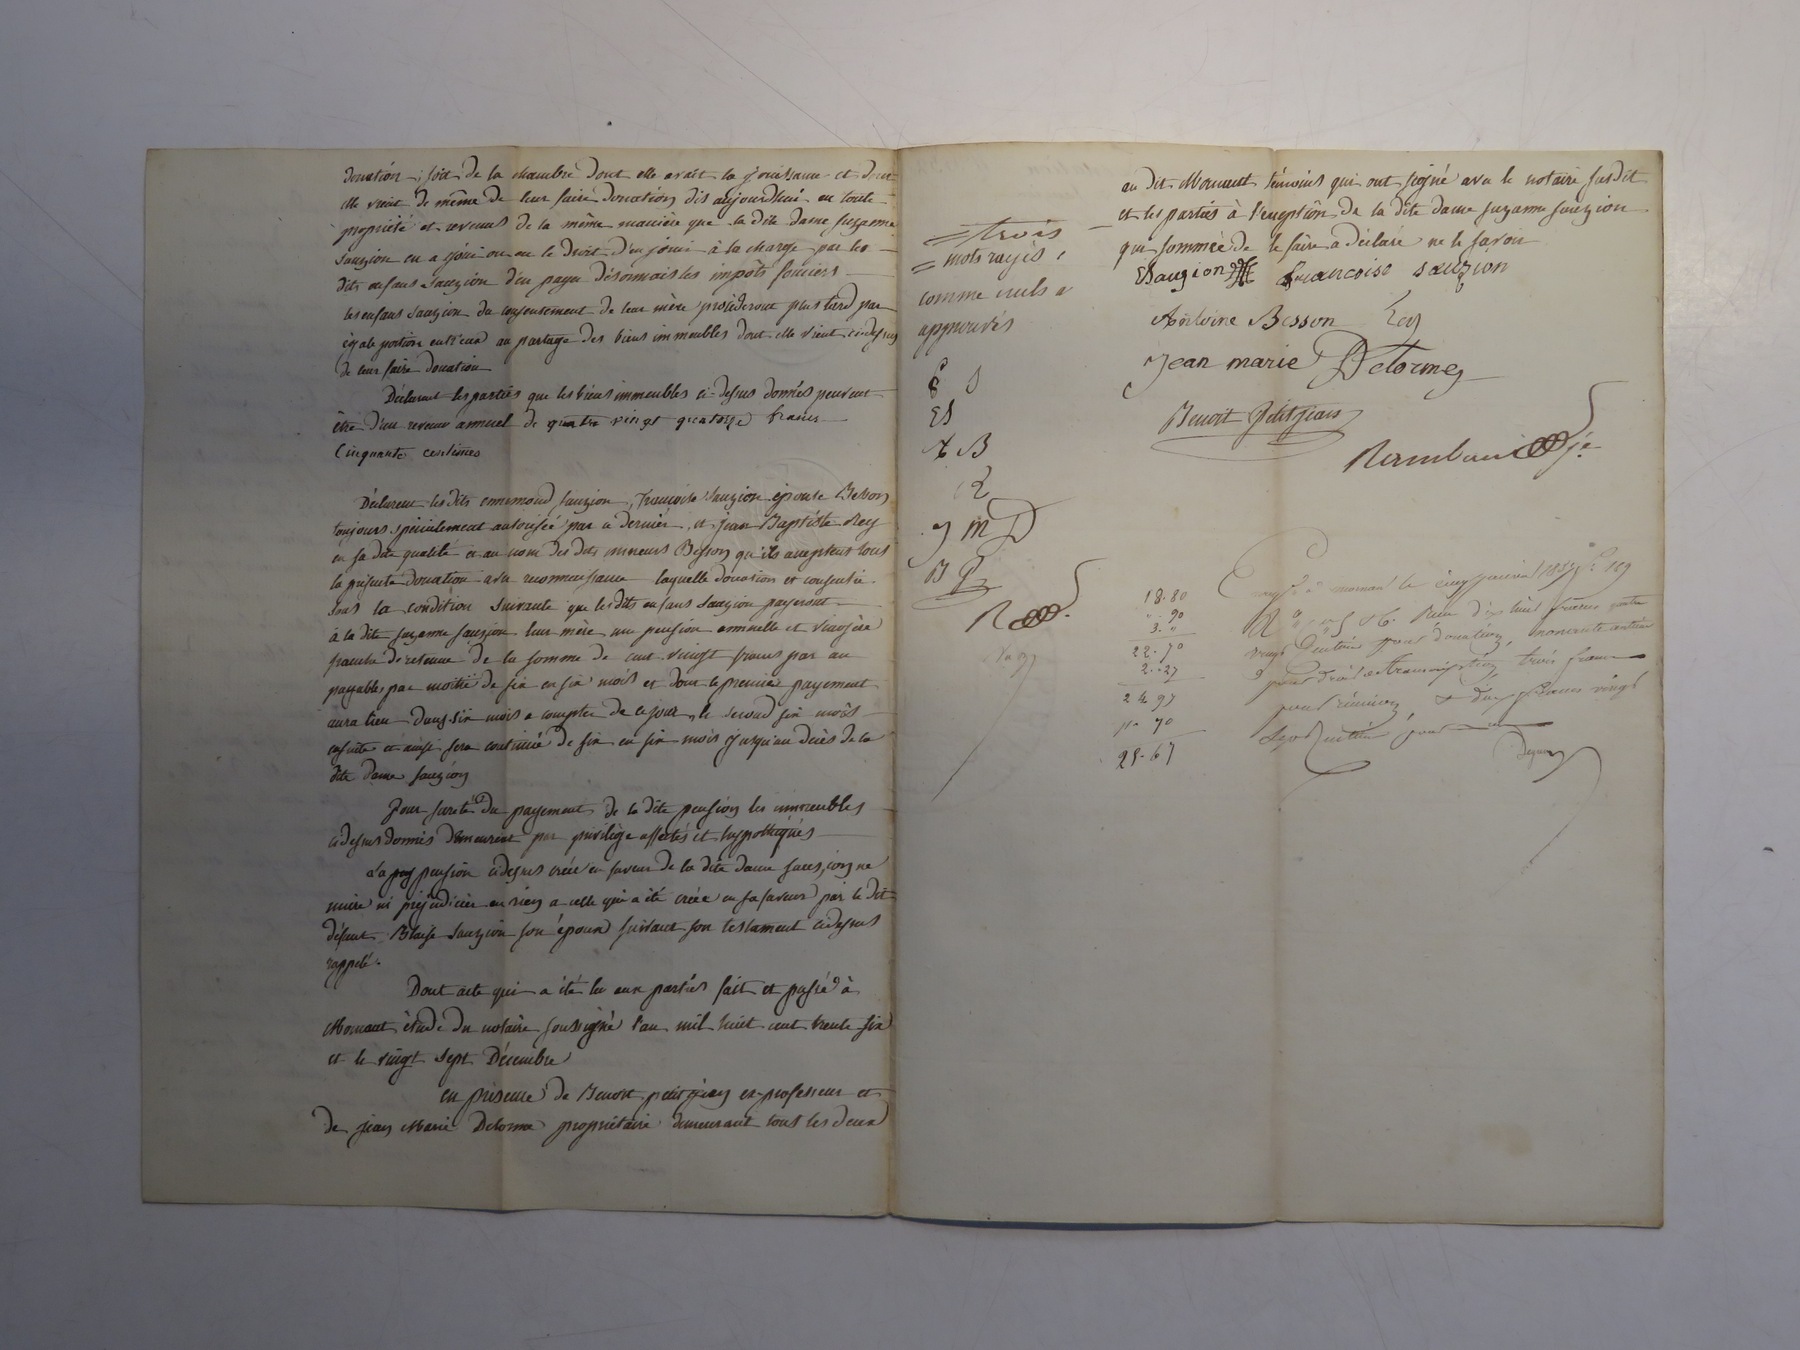 donation, soit de la chambre dont elle avait la jouissance et dont
elle vient de même de leur faire donation dès aujourdhui en toute
propriété et revenus de la même manière que la dite dame suzanne
Sauzion en a joui ou eu le droit d'en jouir à la charge par les
dits enfans Sauzion d'en payer désormais les impôts fonciers
les enfans Sauzion du consentement de leur mère procèderont plus tard par
égale portion entr'eux au partage des biens immeubles dont elle vient cidessus
de leur faire donation
Déclarent les parties que les biens immeubles ci-dessus donnés peuvent
être d'un revenu annuel de quatre vingt quatorze francs
Cinquante centimes
Déclarent les dits ennemond Sauzion, françoise Sauzion épouse Besson
toujours spécialement autorisée par ce dernier, et jean Baptiste Rey
en sa dite qualité et au nom des dits mineurs Besson qu'ils acceptent tous
la présente donation avec reconnaissance laquelle donation est consentie
sous la condition suivante que les dits enfans Sauzion payeront
à la dite suzanne Sauzion leur mère une pension annuelle et viagère
franche de retenue de la somme de cent vingt francs par an
payables par moitié de six en six mois et dont le premier payement
aura lieu dans six mois a compter de ce jour, le second six mois
ensuite et ainsi sera continué de six en six mois jusqu'au décès de la
dite dame Sauzion
Pour sureté du payement de la dite pension les immeubles
cidessus donnés demeurent par privilège affectés et hypothéqués
La pay pension cidessus créée en faveur de la dite dame sauzion ne
nuire ni préjudicier en rien a celle qui a été créée en sa faveur par le dit
défunt Blaise Sauzion son époux suivant son testament cidessus
rappelé.
Dont acte qui a été lu aux parties fait et passé à
Mornant étude du notaire soussigné l'an mil huit cent trente six
et le vingt sept Décembre
en présence de Benoit petitjean ex-professeur et
de jean Marie Delorme propriétaire demeurant tous les deux
au dit Mornant témoins qui ont signé avec le notaire susdit
et les parties à l'exception de la dite dame suzanne sauzion
qui sommée de le faire a déclaré ne le savoir
ESauzion françoise sauzion
Antoine Besson Rey
Jean marie Delorme
Benoit Petitjean
Rambaud
trois
mots rayés
comme nuls
approuvés
f S
ES
A B
R
J M D
B P
R
18.80
" 90
3. "
22.70
2.27
24 97
p. 70
25.67
Enregistré à mornant le cinq janvier 1837 f. 119
Reçu dix huit francs quatre
vingt centimes pour donation, nonante centimes
pour droit de transcription, trois francs
pour réunion, & deux francs vingt
sept centimes pour